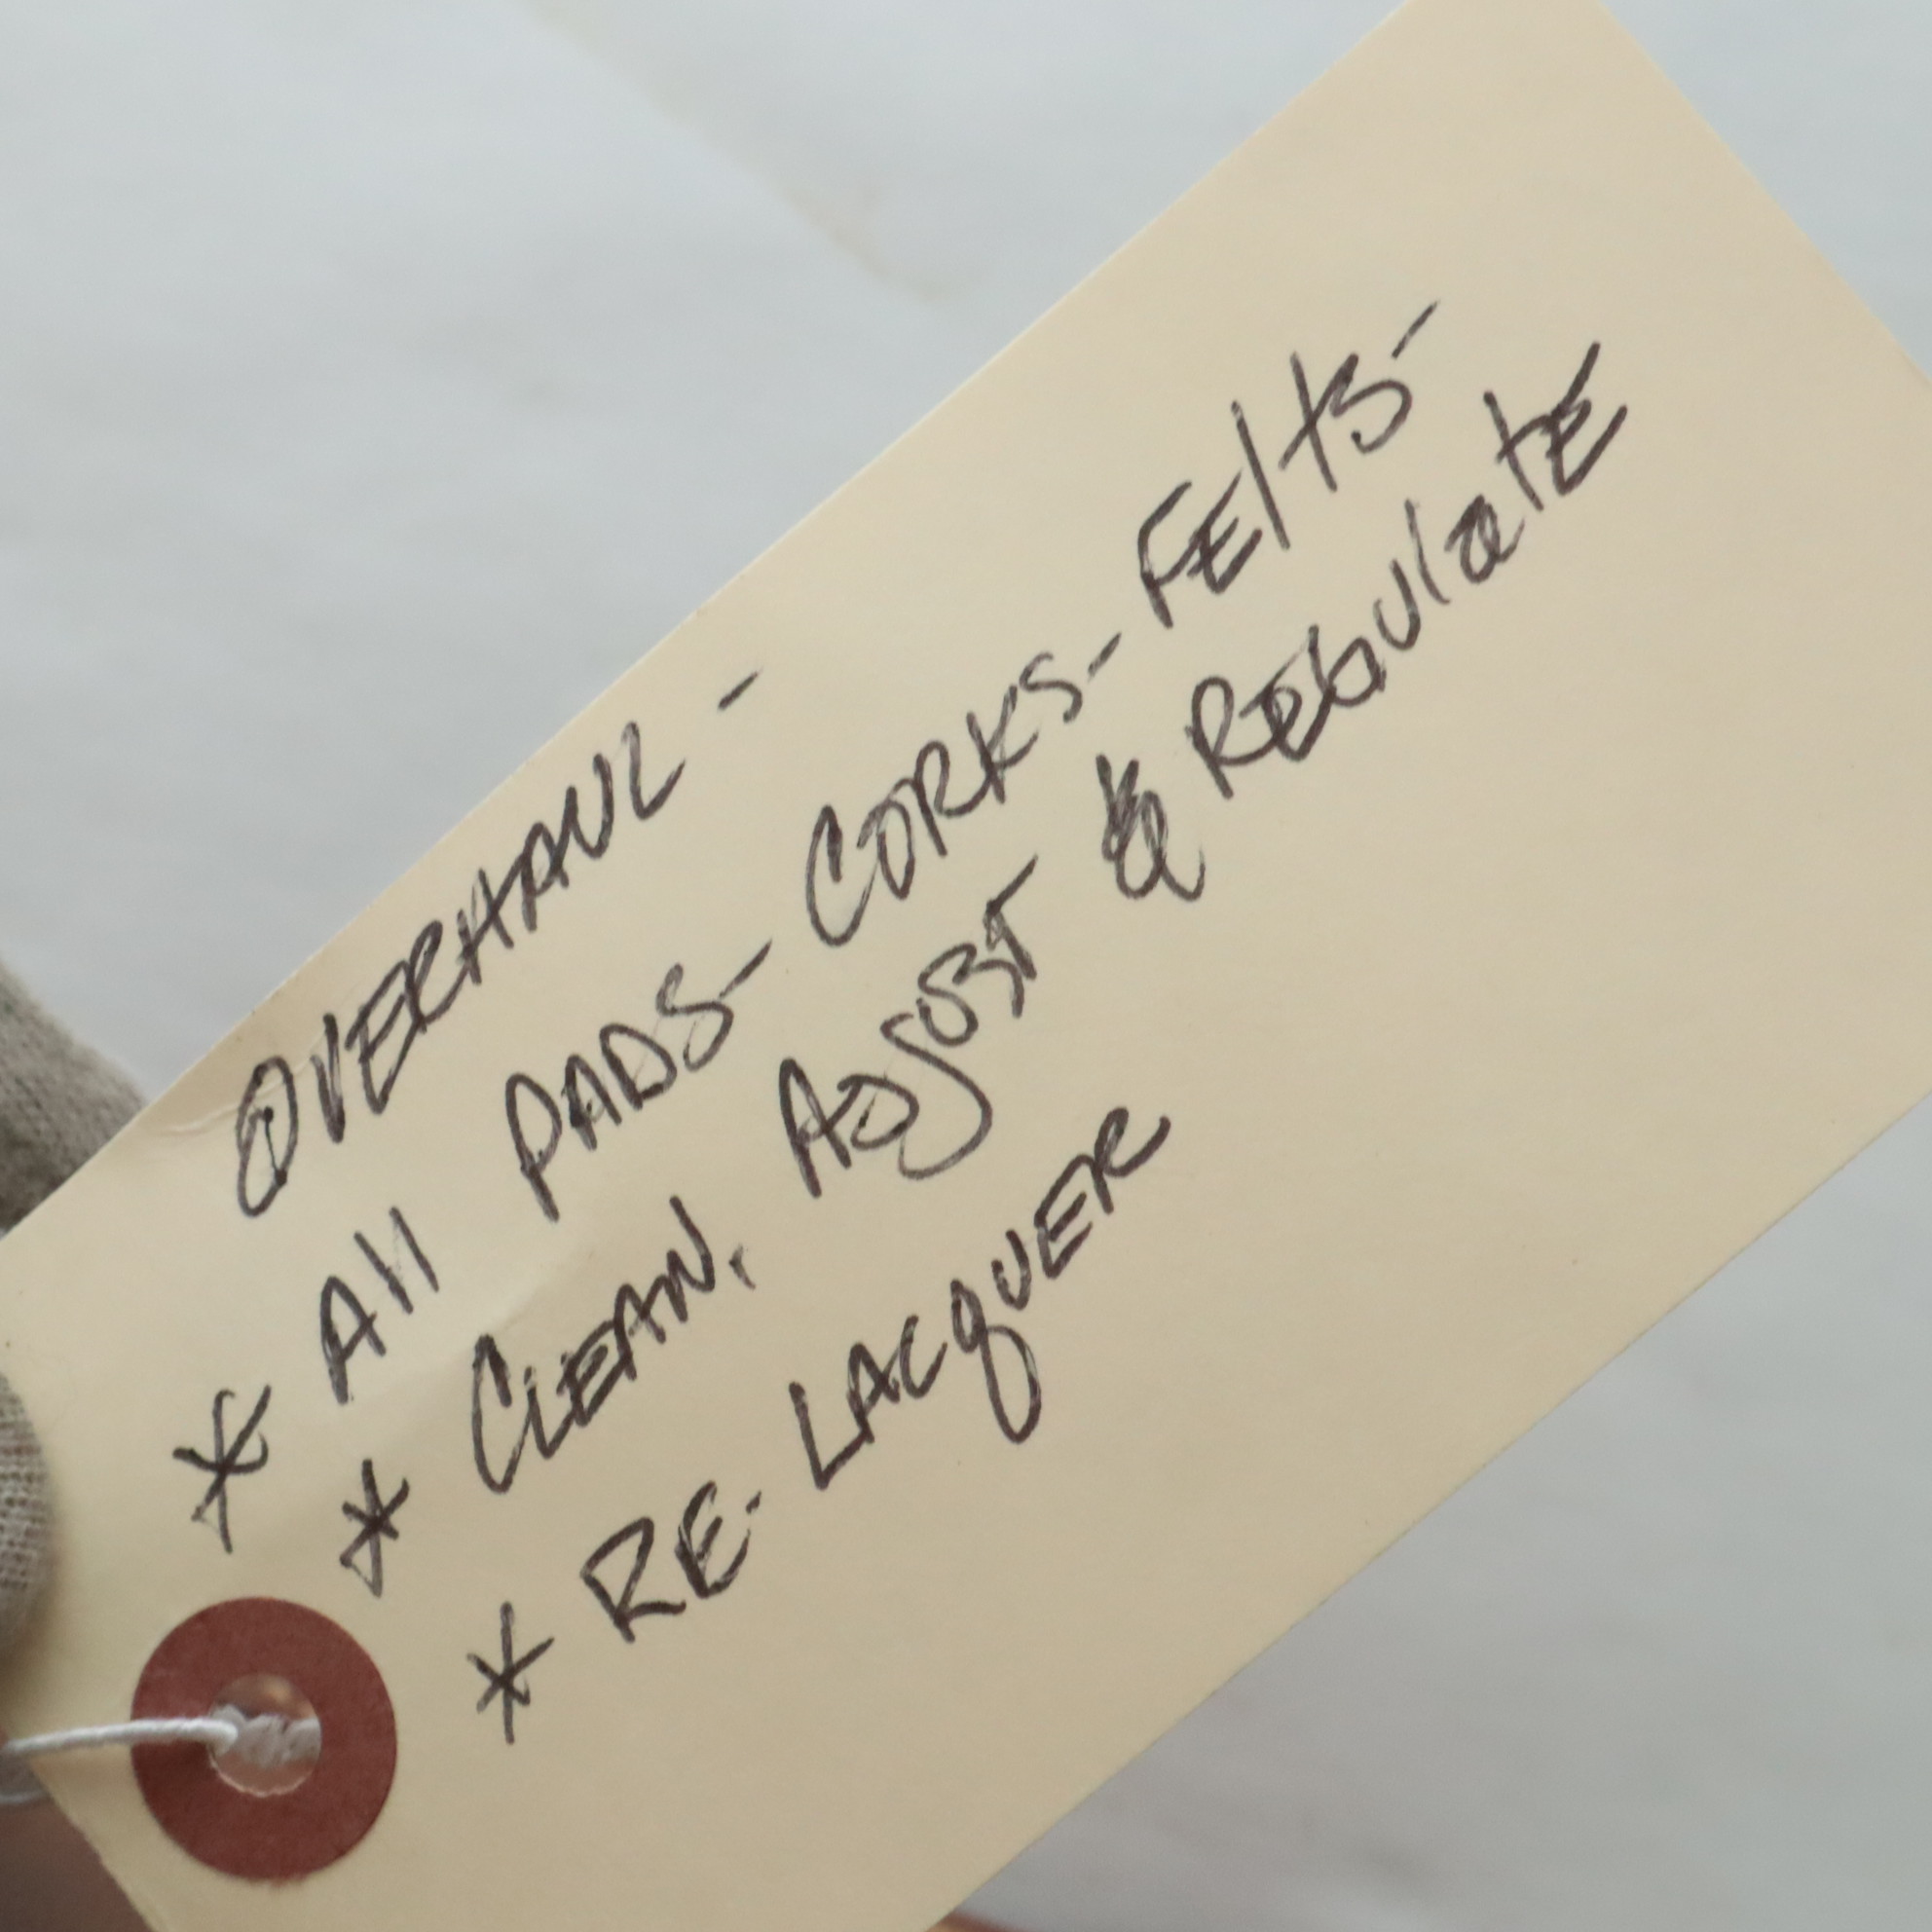 OVERHAUL -
* All PADS- CORKS- FElts-
* CLEAN, ADJUST & REGulatE
* RE- LACqUER